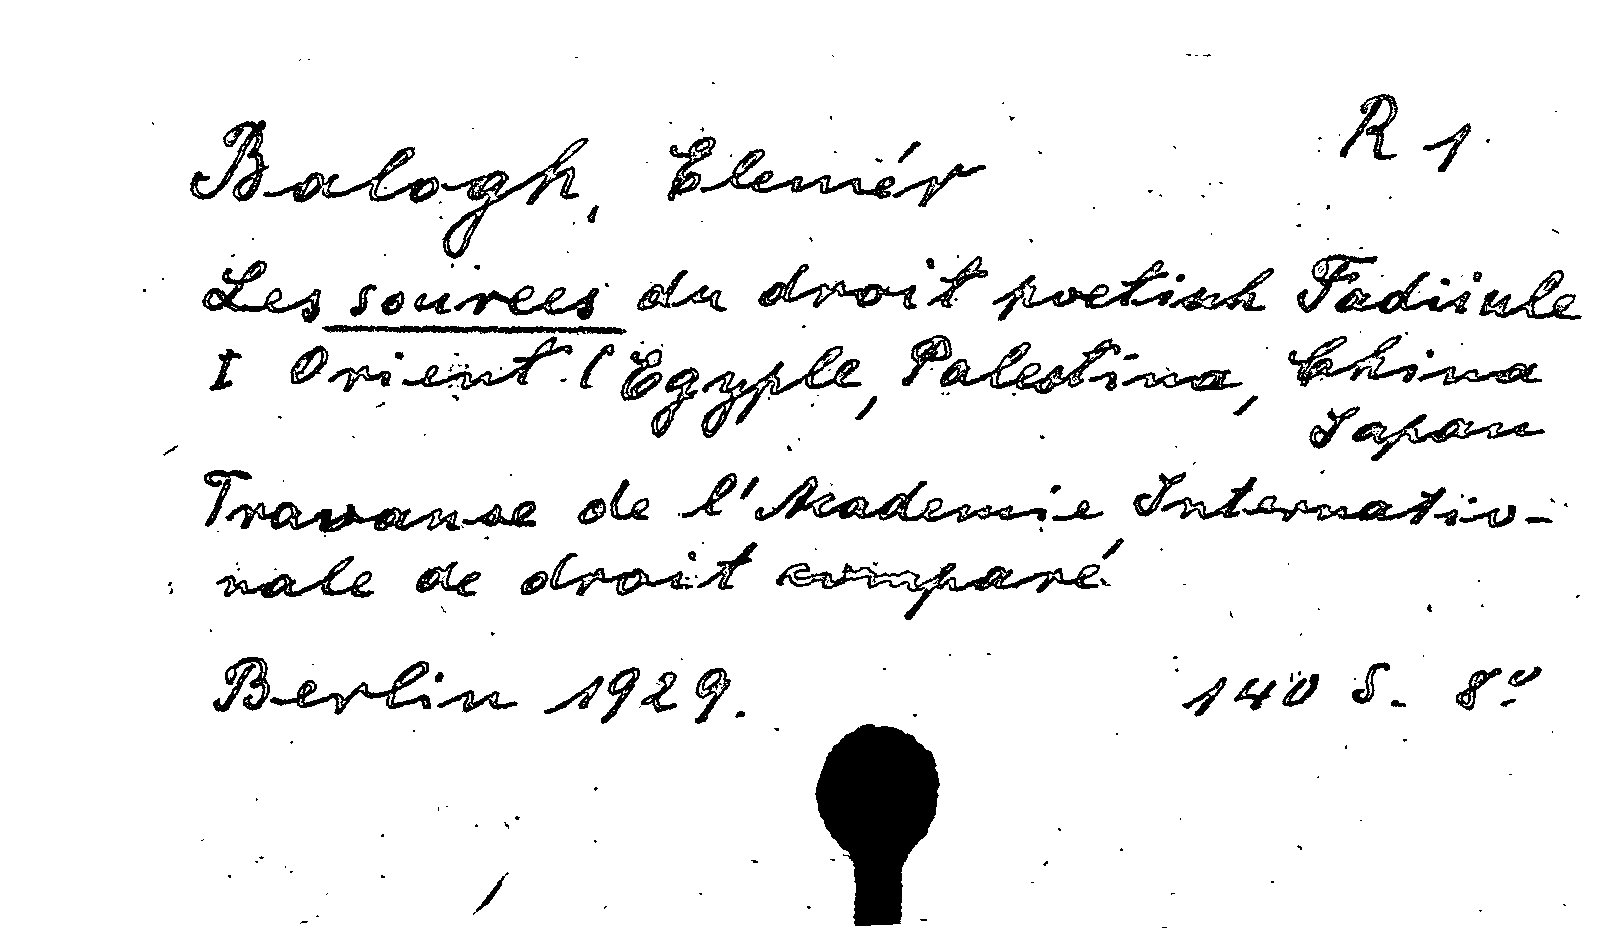 R 1
Balogh, Elemér
Les sources du droit poetish Fadiiule
I Orient (Egyple, Palestina, China
Japan
Travause de l'Akademie Internatio-
nale de droit comparé
Berlin 1929. 140 S. 8°